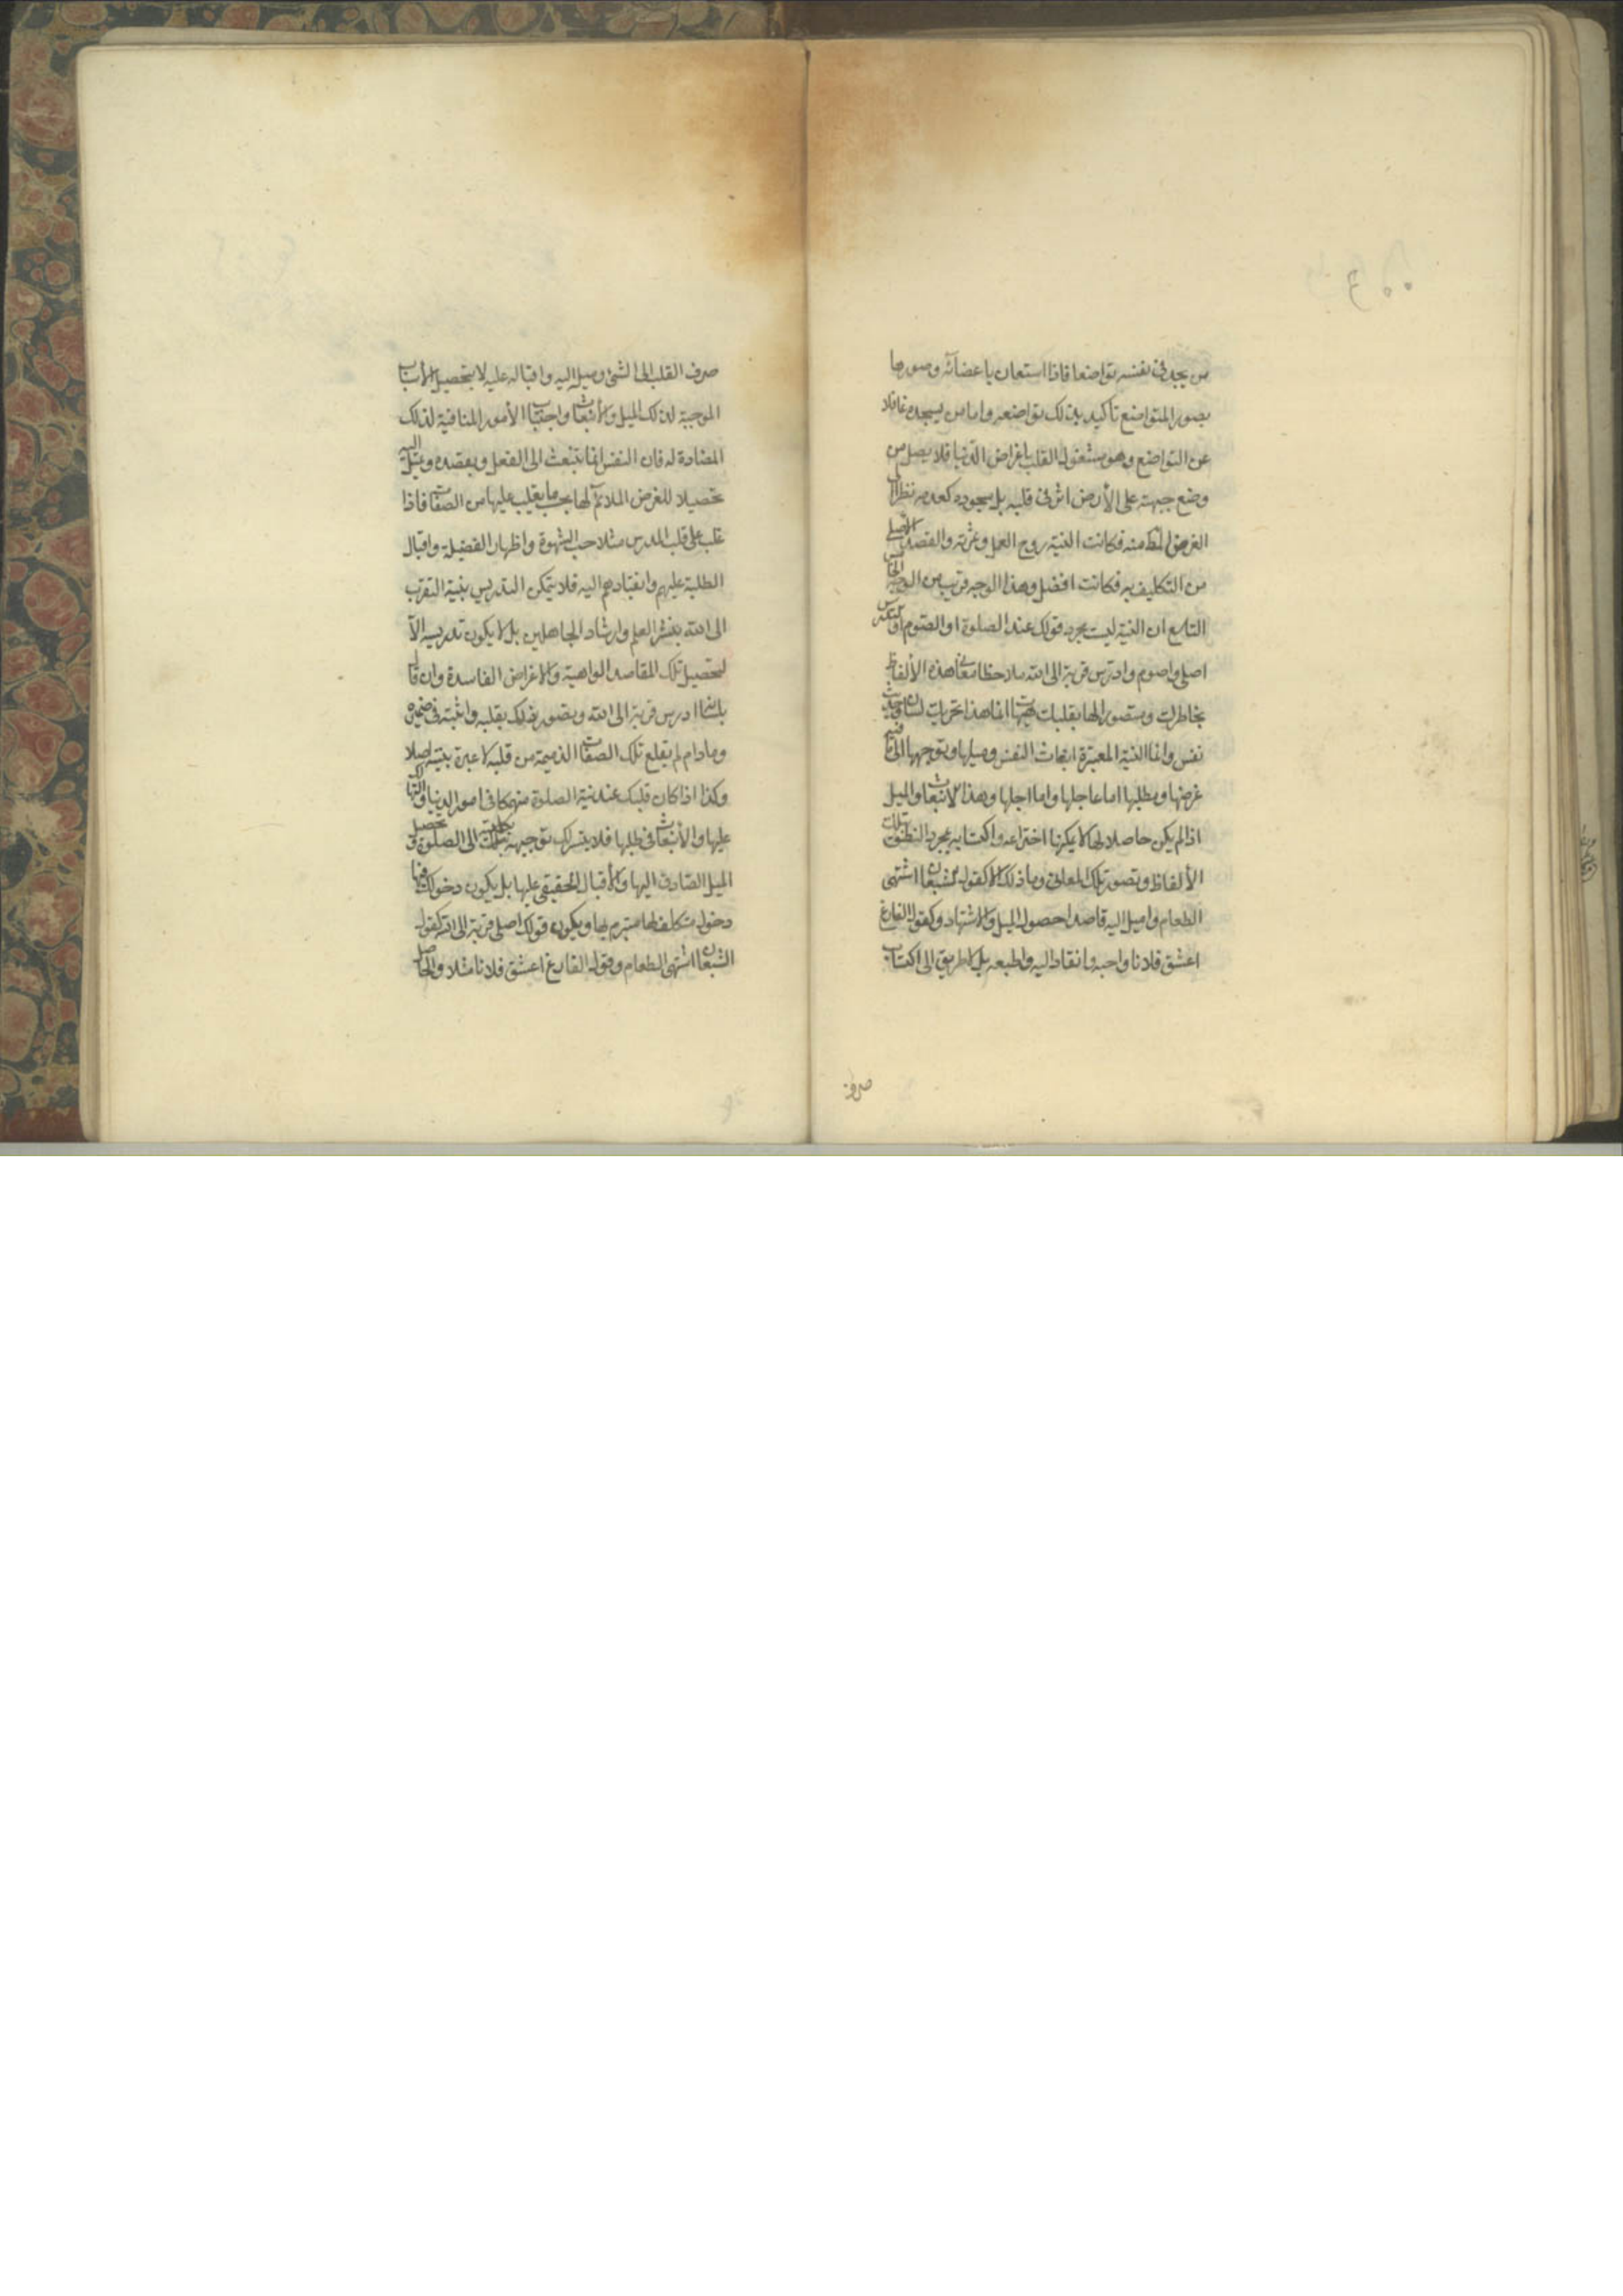 من يجد في نفسه تواضعا فاذا استعان باعضائه وصورها
بصور المتواضع تأكد بذلك تواضعه واما من يسجد غافلا
عن التواضع وهو مشغول القلب باغراض الدنيا فلا يصل من
وضع جبهته على الأرض اثر في قلبه بل سجوده كعدمه نظرا الى
الغرض المط منه فكانت النية روح العمل وثمرته والمقصد الاصلي
من التكليف به فكانت افضل وهذا الوجه قريب من الوجه الخامس
التاسع ان النية ليست مجرد قولك عند الصلوة او الصوم او التدريس
اصلي واصوم وادرس قربة الى الله ملاحظا معاني هذه الألفاظ
بخاطرك ومتصورا لها بقلبك هيهات انما هذا تحريك لسان وحديث
نفس وانما النية المعتبرة انبعاث النفس وميلها وتوجهها الى ما فيه
غرضها ومطلبها اما عاجلها واما اجلها وهذا الانبعاث والميل
اذا لم يكن حاصلا لها لا يمكنها اختراعه واكتسابه بمجرد النطق بتلك
الألفاظ وتصور تلك المعاني وما ذلك الا كقول الشبعان اشتهي
الطعام واميل اليه قاصدا حصول الميل والاشتهاء وكقول الفارغ
اعشق فلانا واحبه وانقاد اليه واطيعه بل لا طريق الى اكتساب
صرف
صرف القلب الى الشيء وميله اليه واقباله عليه الا بتحصيل الأسباب
الموجبة لذلك الميل والأنبعاث واجتناب الأمور المنافية لذلك
المضادة له فان النفس انما تنبعث الى الفعل ويقصده وتميل اليه
تحصيلا للغرض الملائم لها بحسب ما يغلب عليها من الصفات فاذا
غلب على قلب المدرس مثلا حب الشهوة واظهار الفضيلة واقبال
الطلبة عليهم وانقيادهم اليه فلا يتمكن التدريس بنية التقرب
الى الله بنشر العلم وارشاد الجاهلين بل لا يكون تدريسه الا
لتحصيل تلك المقاصد الواهية والاغراض الفاسدة وان قال
بلسانه ادرس قربة الى الله وتصور ذلك بقلبه واثبته في ضميره
وما دام لم يقلع تلك الصفات الذميمة من قلبه لا عبرة بنيته اصلا
وكذا اذا كان قلبك عند نية الصلوة منهمكا في امور الدنيا والتهالك
عليها والأنبعاث في طلبها فلا يتيسر لك توجيهه بكليته الى الصلوة وتحصيل
الميل الصادق اليها والأقبال الحقيقي عليها بل يكون دخولك فيها
دخول متكلف لها متبرم بها ويكون قولك اصلي قربة الى الله كقول
الشبعان اشتهي الطعام وقول الفارغ اعشق فلانا مثلا والحاصل